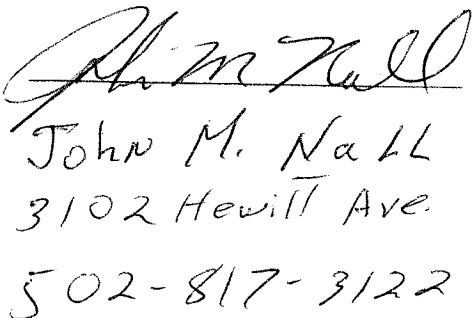 John M Nall
John M. Nall
3102 Hewitt Ave.
502-817-3122